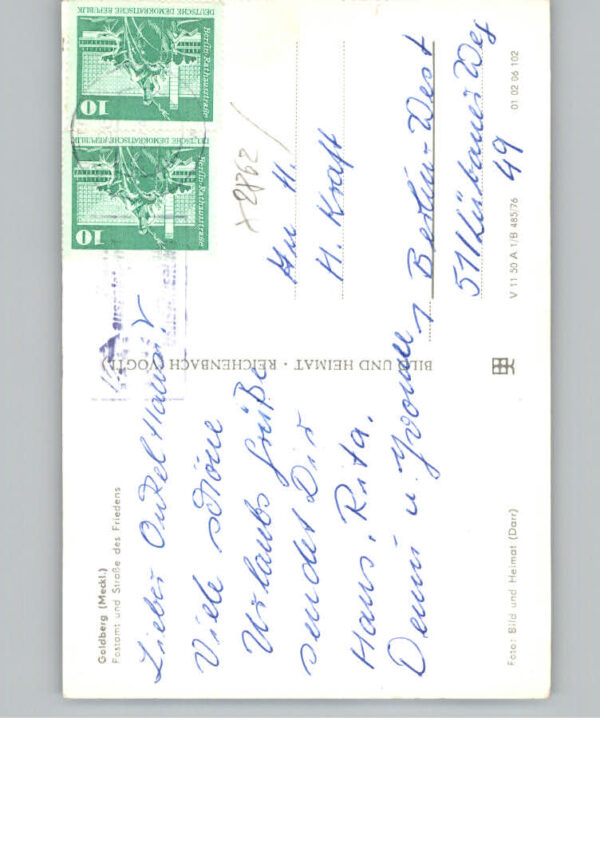 Goldberg (Meckl.)
Postamt und Straße des Friedens
Lieber Onkel
Viele schöne
Urlaubs Grüße
sendet Dir
Hans, Rita,
u. Yvonne
Foto: Bild und Heimat (Darr)
BILD UND HEIMAT · REICHENBACH (VOGTL)
DEUTSCHE DEMOKRATISCHE REPUBLIK
Berlin-Rathausstraße
10
DEUTSCHE DEMOKRATISCHE REPUBLIK
Berlin-Rathausstraße
10
H. Kraft
1 Berlin-West
51 Lübarser Weg
49
V 11 50 A 1/B 485/76 01 02 06 102